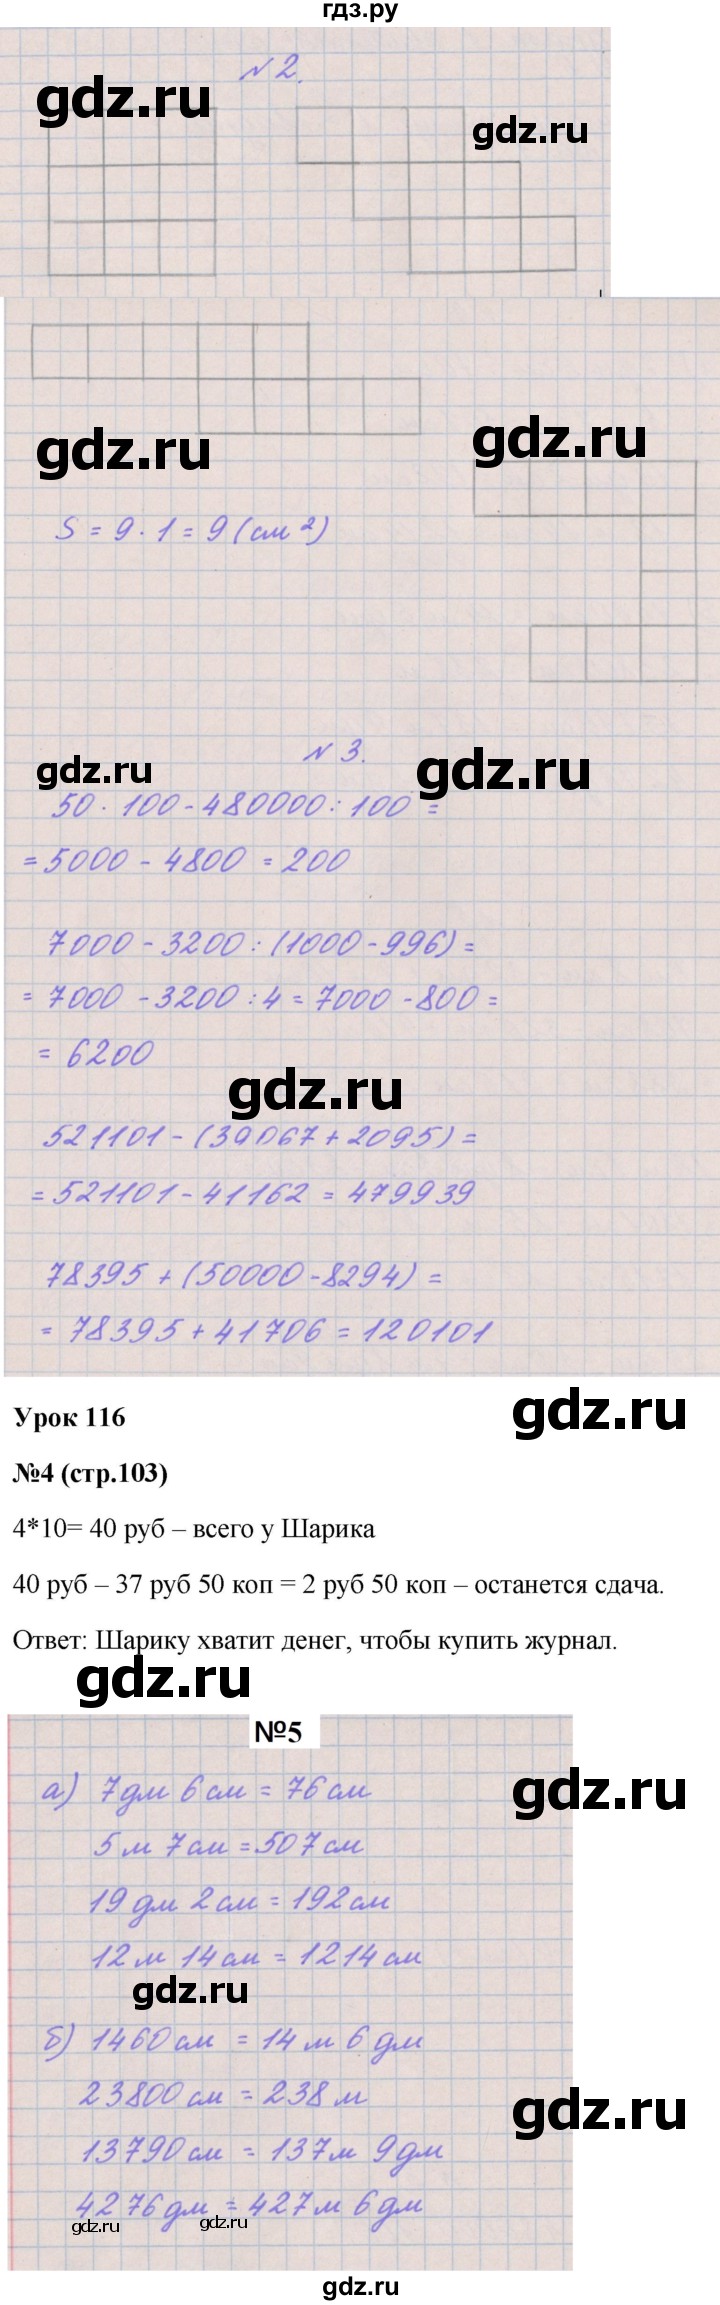 гдз.ру
№2.
gdz.ru
gdz.ru
gdz.ru
gdz.ru
S = 9 · 1 = 9 (см²)
№3.
gdz.ru
gdz.ru
50 · 100 - 480000 : 100 =
= 5000 - 4800 = 200
7000 - 3200 : (1000 - 996) =
= 7000 - 3200 : 4 = 7000 - 800 =
= 6200
gdz.ru
521101 - (39067 + 2095) =
= 521101 - 41162 = 479939
78395 + (50000 - 8294) =
= 78395 + 41706 = 120101
gdz.ru
Урок 116
№4 (стр.103)
4*10= 40 руб – всего у Шарика
40 руб – 37 руб 50 коп = 2 руб 50 коп – останется сдача.
Ответ: Шарику хватит денег, чтобы купить журнал.
gdz.ru
№5
а) 7 дм 6 см = 76 см
gdz.ru
5 м 7 см = 507 см
19 дм 2 см = 192 см
12 м 14 см = 1214 см
gdz.ru
б) 1460 см = 14 м 6 дм
23800 см = 238 м
gdz.ru
13790 см = 137 м 9 дм
4276 дм = 427 м 6 дм
gdz.ru
gdz.ru
gdz.ru